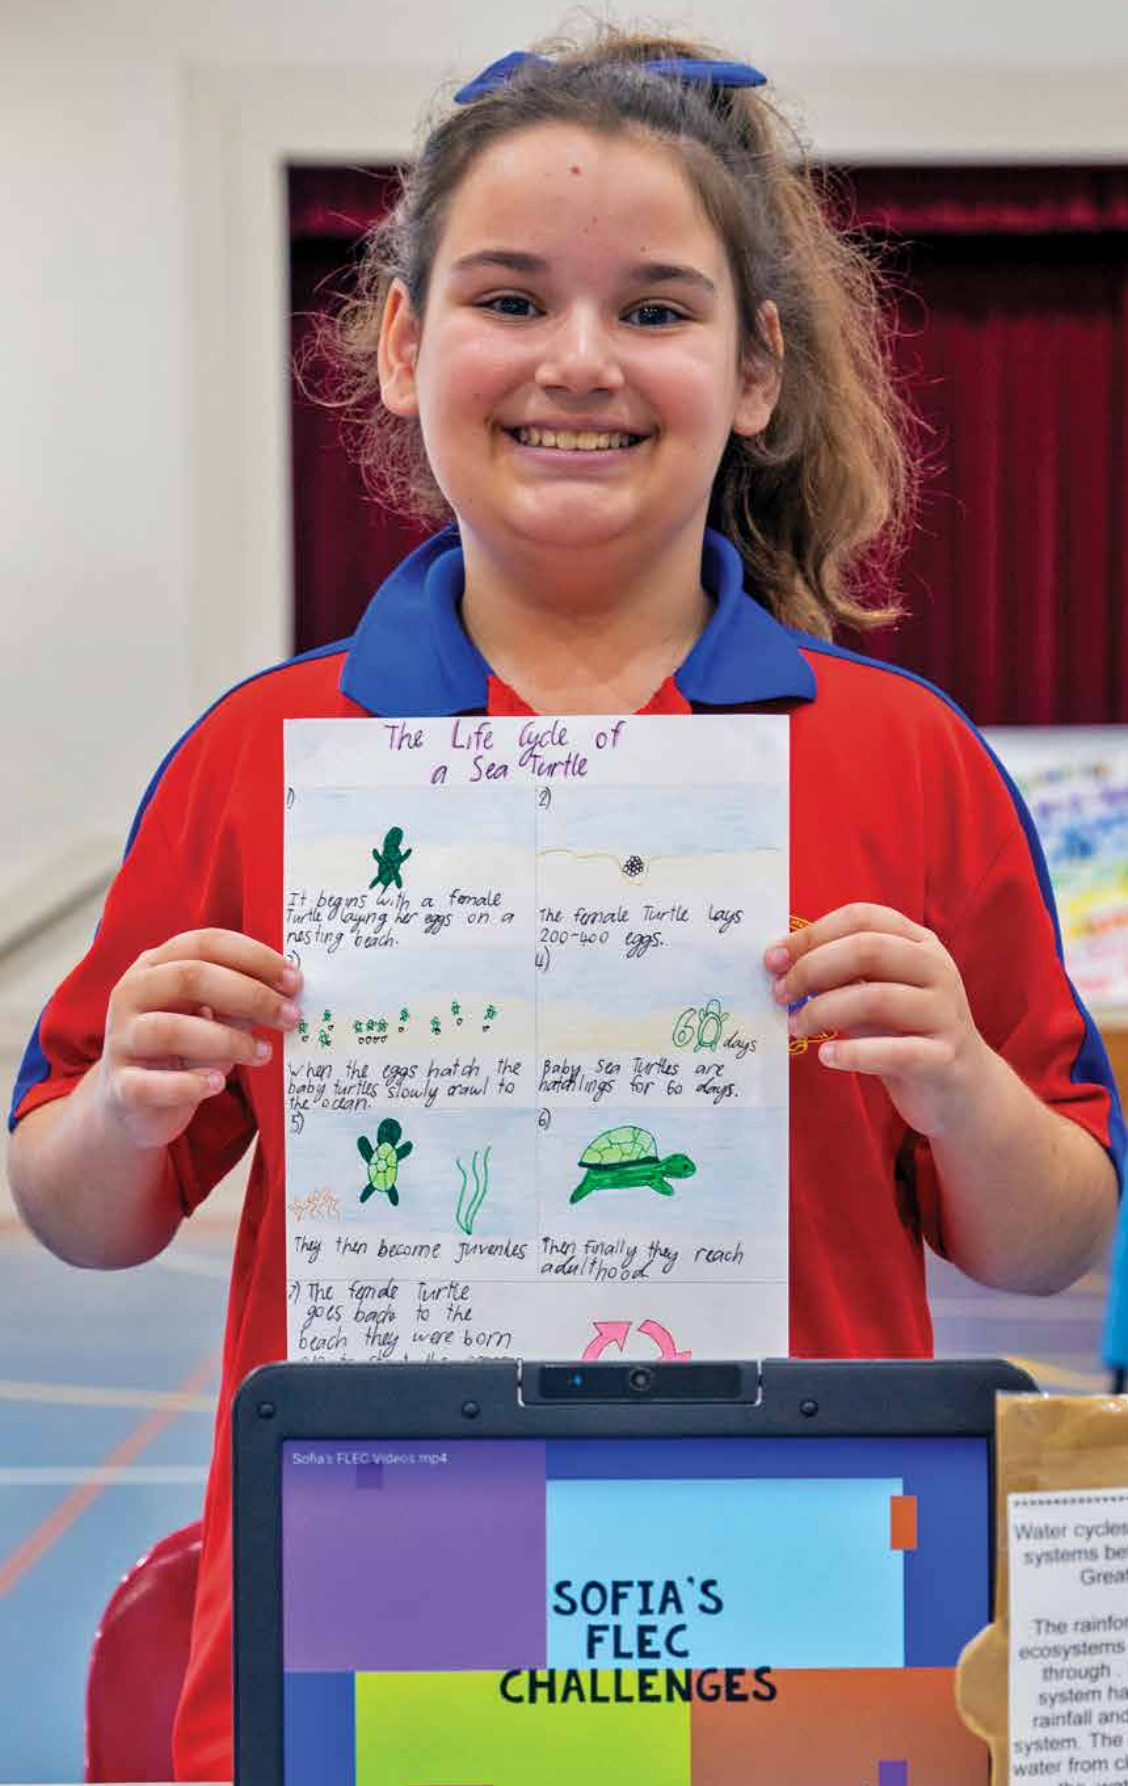 The Life Cycle of
a Sea Turtle
1)
It begins with a female
Turtle laying her eggs on a
nesting beach.
2)
The female Turtle lays
200-400 eggs.
3)
When the eggs hatch the
baby turtles slowly crawl to
the ocean.
4)
60 days
Baby Sea Turtles are
hatchlings for 60 days.
5)
They then become juveniles
6)
Then finally they reach
adulthood
7) The female Turtle
goes back to the
beach they were born
Sofia's FLEC Videos.mp4
SOFIA'S
FLEC
CHALLENGES
Water cycles
systems be
Great
The rainfor
ecosystems
through .
system ha
rainfall and
system. The
water from cl